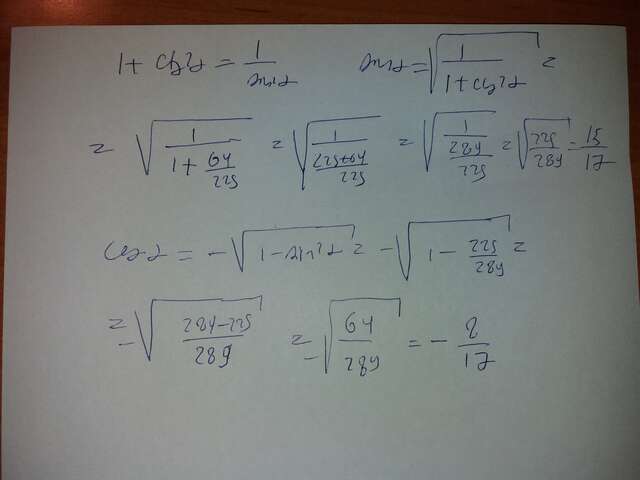 1 + ctg²α = 1/sin²α    sinα = √(1/(1 + ctg²α)) =
= √(1/(1 + 64/225)) = √(1/((225+64)/225)) = √(1/(289/225)) = √(225/289) = 15/17
cosα = -√(1 - sin²α) = -√(1 - 225/289) =
= -√((289-225)/289) = -√(64/289) = -8/17